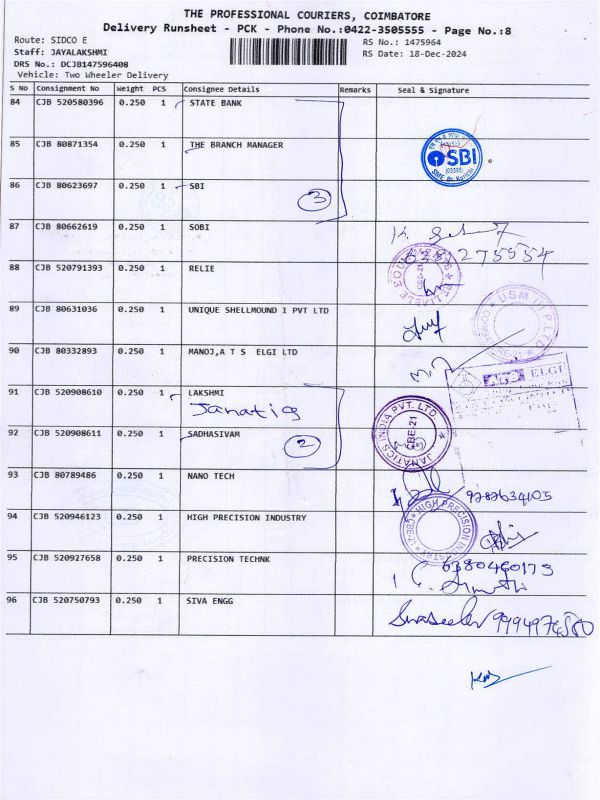 THE PROFESSIONAL COURIERS, COIMBATORE
Delivery Runsheet - PCK - Phone No.:0422-3505555 - Page No.:8
Route: SIDCO E
Staff: JAYALAKSHMI
DRS No.: DCJB147596408
Vehicle: Two Wheeler Delivery
RS No.: 1475964
RS Date: 18-Dec-2024
S No Consignment No Weight PCS Consignee Details Remarks Seal & Signature
84 CJB 520580396 0.250 1 STATE BANK
85 CJB 80871354 0.250 1 THE BRANCH MANAGER
SBI
86 CJB 80623697 0.250 1 SBI
3
87 CJB 80662619 0.250 1 SOBI
88 CJB 520791393 0.250 1 RELIE
89 CJB 80631036 0.250 1 UNIQUE SHELLMOUND I PVT LTD
90 CJB 80332893 0.250 1 MANOJ,A T S ELGI LTD
ELGI
91 CJB 520908610 0.250 1 LAKSHMI
Janatics
JANATICS INDIA PVT. LTD.
CBE-21
92 CJB 520908611 0.250 1 SADHASIVAM
2
93 CJB 80789486 0.250 1 NANO TECH
9282634105
94 CJB 520946123 0.250 1 HIGH PRECISION INDUSTRY
HIGH PRECISION INDUSTRY
95 CJB 520927658 0.250 1 PRECISION TECHNK
6380460175
96 CJB 520750793 0.250 1 SIVA ENGG